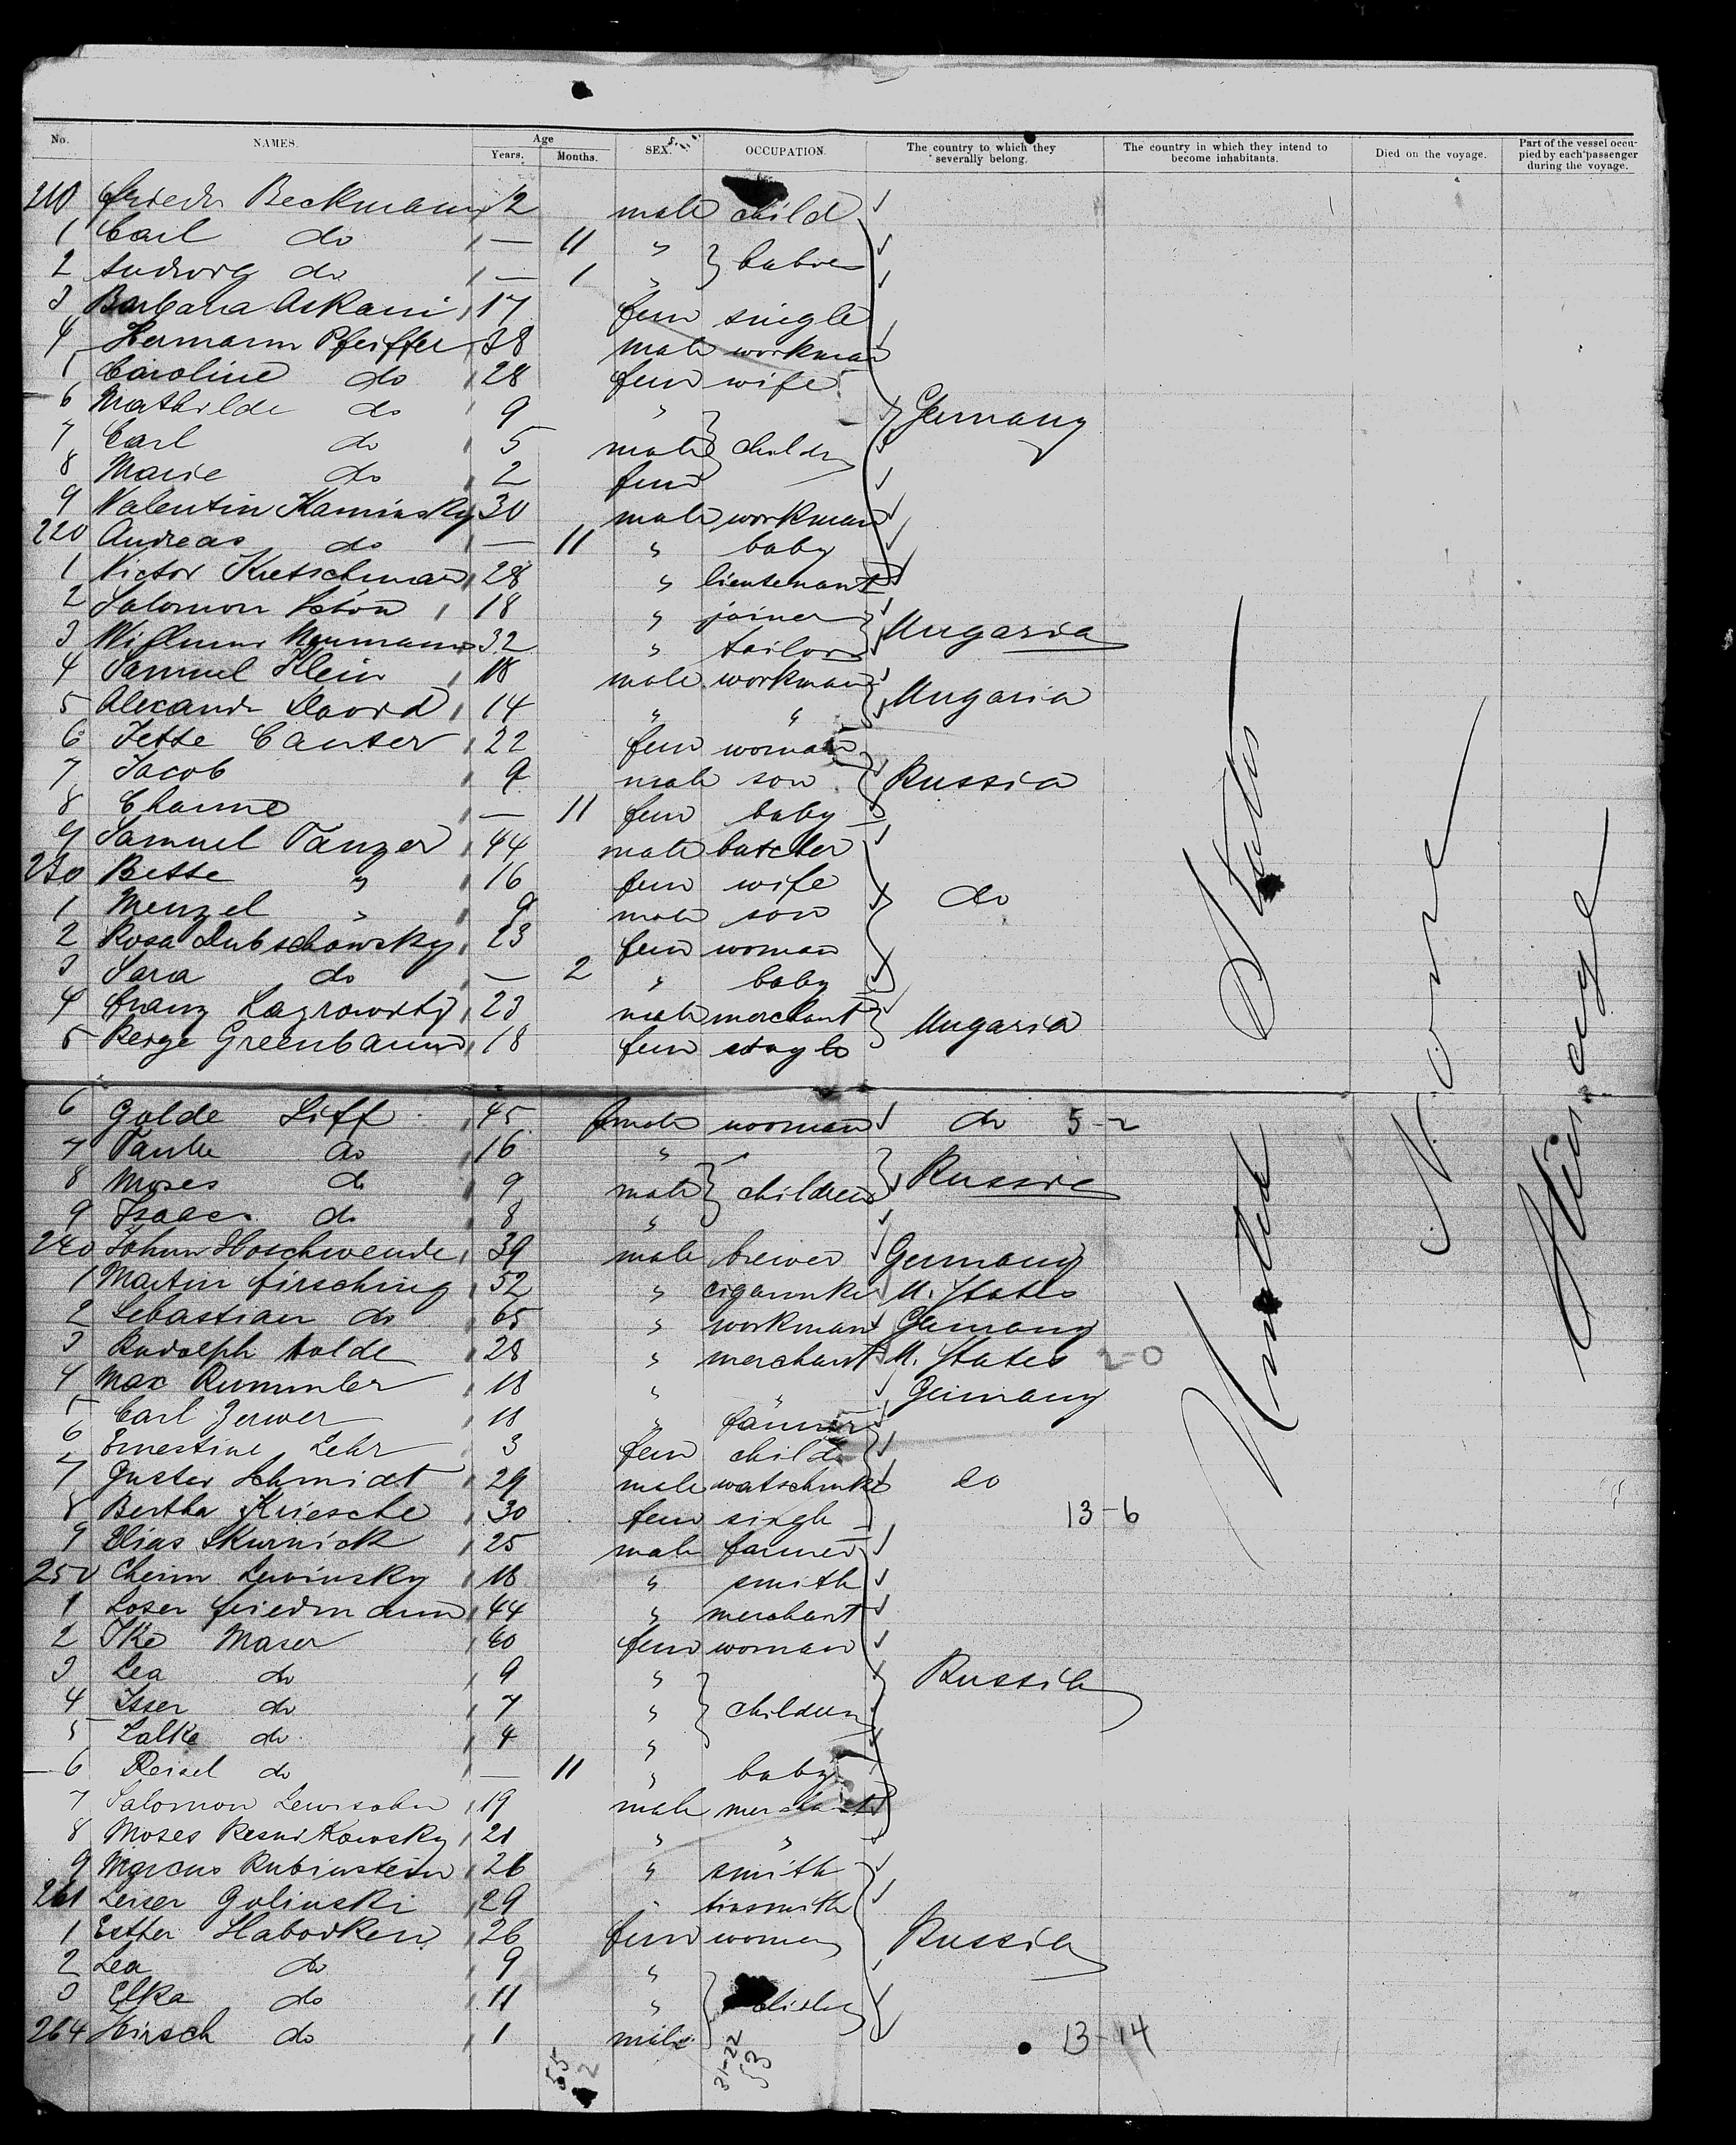 No. NAMES. Age Years. Months. SEX. OCCUPATION. The country to which they severally belong. The country in which they intend to become inhabitants. Died on the voyage. Part of the vessel occupied by each passenger during the voyage.
210 Friedr Beckmann 2 male child
1 Carl do — 11 " babies
2 Ludwig do — 1 "
3 Barbara Askani 17 fem single
4 Hermann Pfeiffer 38 male workman
5 Caroline do 28 fem wife
6 Mathilde do 9 " Germany
7 Carl do 5 male childr
8 Marie do 2 fem
9 Valentin Kaminsky 30 male workman
220 Andreas do — 11 " baby
1 Victor Kretschman 28 " lieutenant
2 Salomon 18 " joiner Ungaria
3 Neumann 32 " tailor
4 Samuel Klein 18 male workman Ungaria
5 Alexandr David 14 " "
6 Jette Canter 22 fem woman
7 Jacob 9 male son Russia
8 Channe — 11 fem baby
9 Samuel Tanzer 44 male butcher
230 Bette " 16 fem wife do
1 Menzel " 9 male son
2 Rosa Dubschowsky 23 fem woman
3 Sara do — 2 " baby
4 Franz 23 male merchant Ungaria
5 Greenbaum 18 fem single
6 Golde Liff 45 female woman do 5-2
7 Taube do 16 "
8 Moses do 9 male children Russia
9 Isaac do 8 "
240 Johann Hoschwende 39 male brewer Germany
1 Martin Firsching 52 " cigarmker U. States
2 Sebastian do 65 " workman Germany
3 Rudolph Nolde 28 " merchant U. States 2-0
4 Max Rummler 18 " " Germany
5 Carl Zerwer 18 " farmer
6 Ernestine Lehr 3 fem child
7 Gustav Schmidt 29 male watschmkr do
8 Bertha Kriesche 30 fem single 13-6
9 Elias Skurnick 25 male farmer
250 Cheim Lewinsky 18 " smith
1 Loser Friedmann 44 " merchant
2 Ike Maser 60 fem woman
3 Lea do 9 " Russia
4 Isser do 7 " children
5 Zalke do 4 "
6 Reisel do — 11 " baby
7 Salomon Lewisohn 19 male merchant
8 Moses Resnikowsky 21 " "
9 Marcus Rubinstein 26 " smith
261 Leiser Golinski 29 " tinsmith
1 Esther Habodken 26 fem woman Russia
2 Lea do 9 "
3 Elka do 11 "
264 Hirsch do 1 male 13-14
55 2
31-22
53
United States
None
Steerage